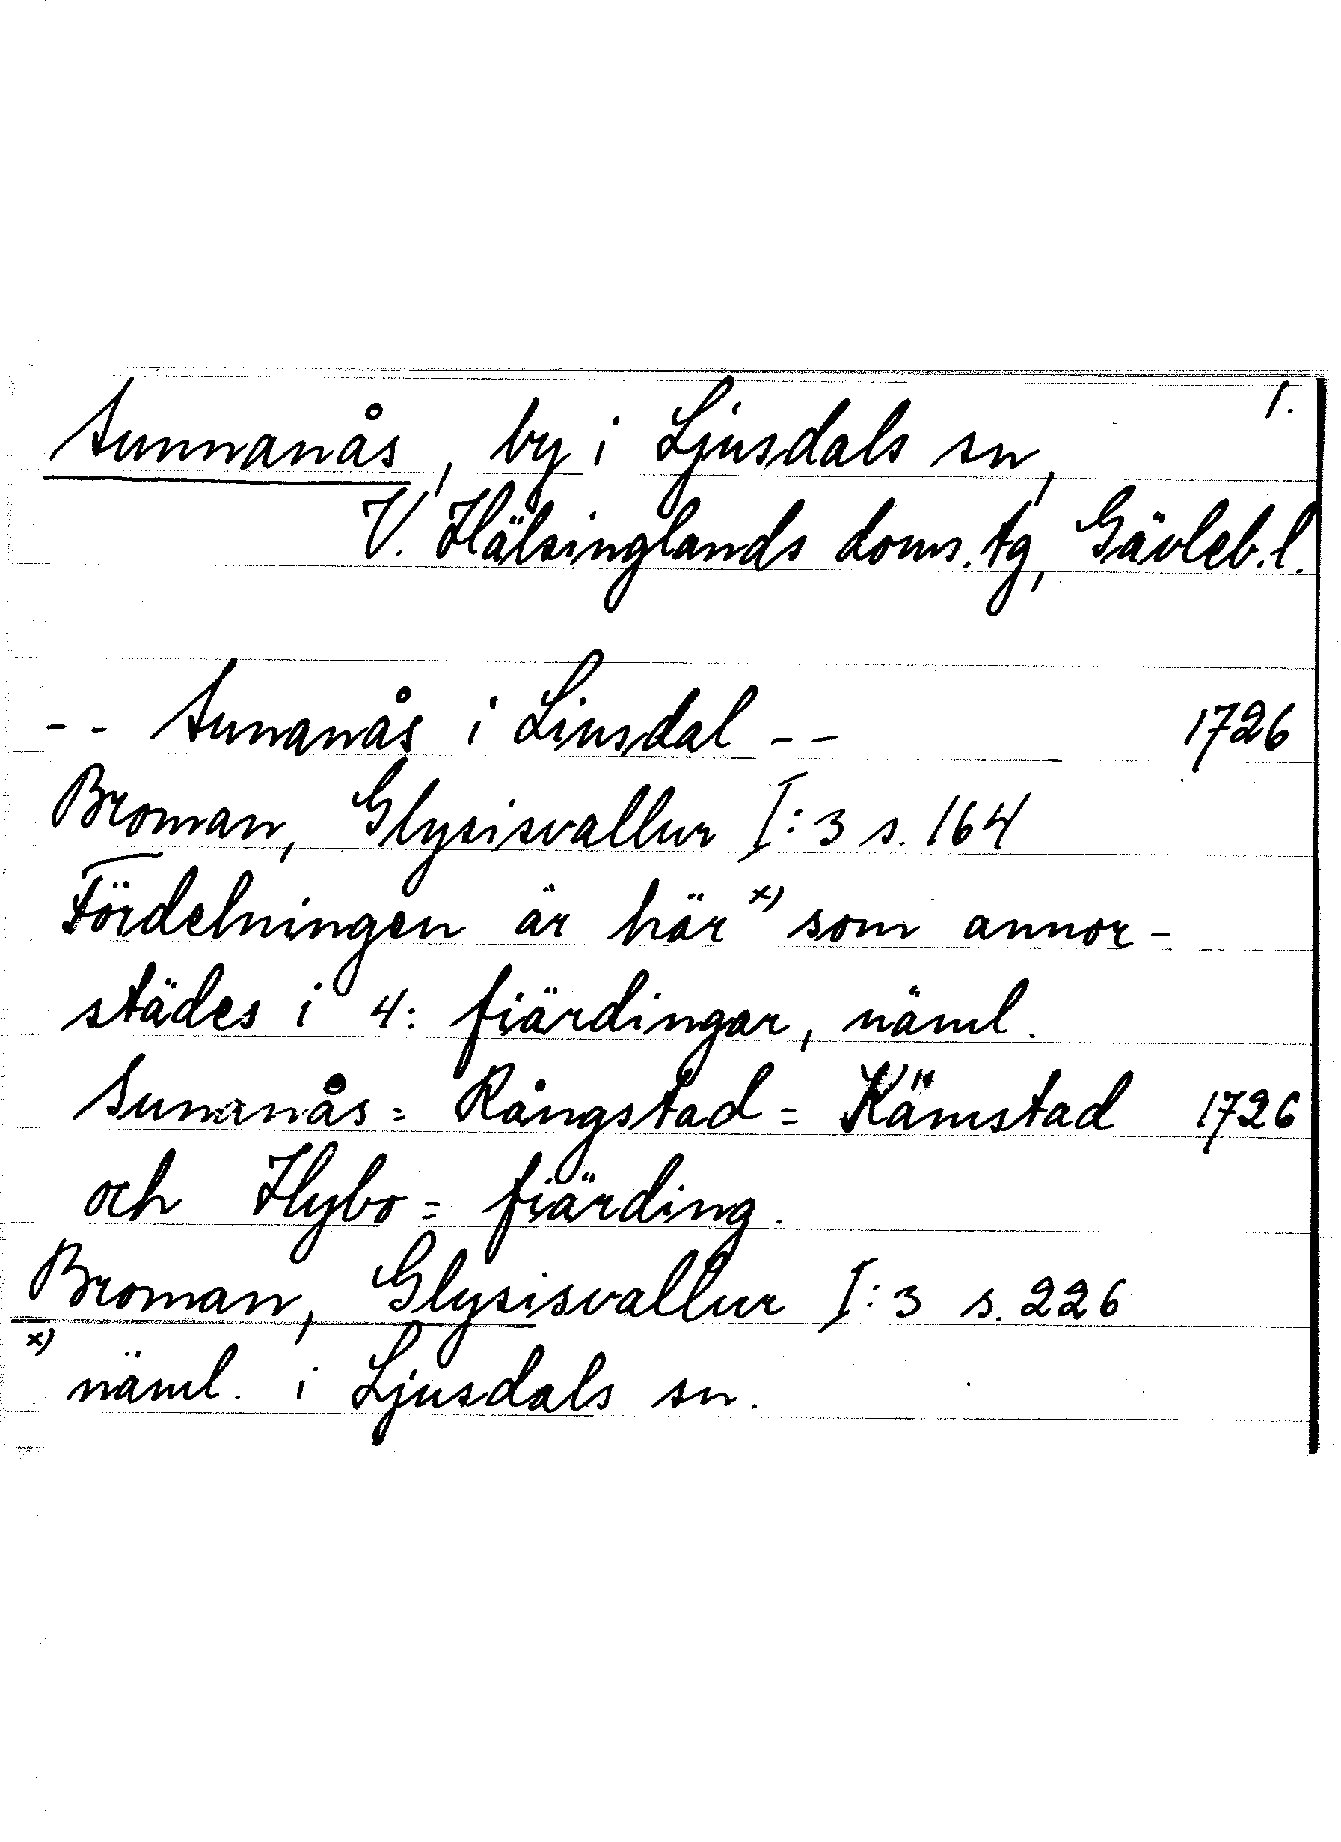 1.
Sunnanås, by i Ljusdals sn,
V. Hälsinglands doms. tg, Gävleb. l.
-- Sunanås i Liusdal -- 1726
Broman, Glysisvallur I:3 s. 164
Fördelningen är här x) som annor-
städes i 4: fiärdingar, näml.
Sunanås= Rångstad= Kämstad 1726
och Hybo= fiärding.
Broman, Glysisvallur I:3 s. 226
x) näml. i Ljusdals sn.